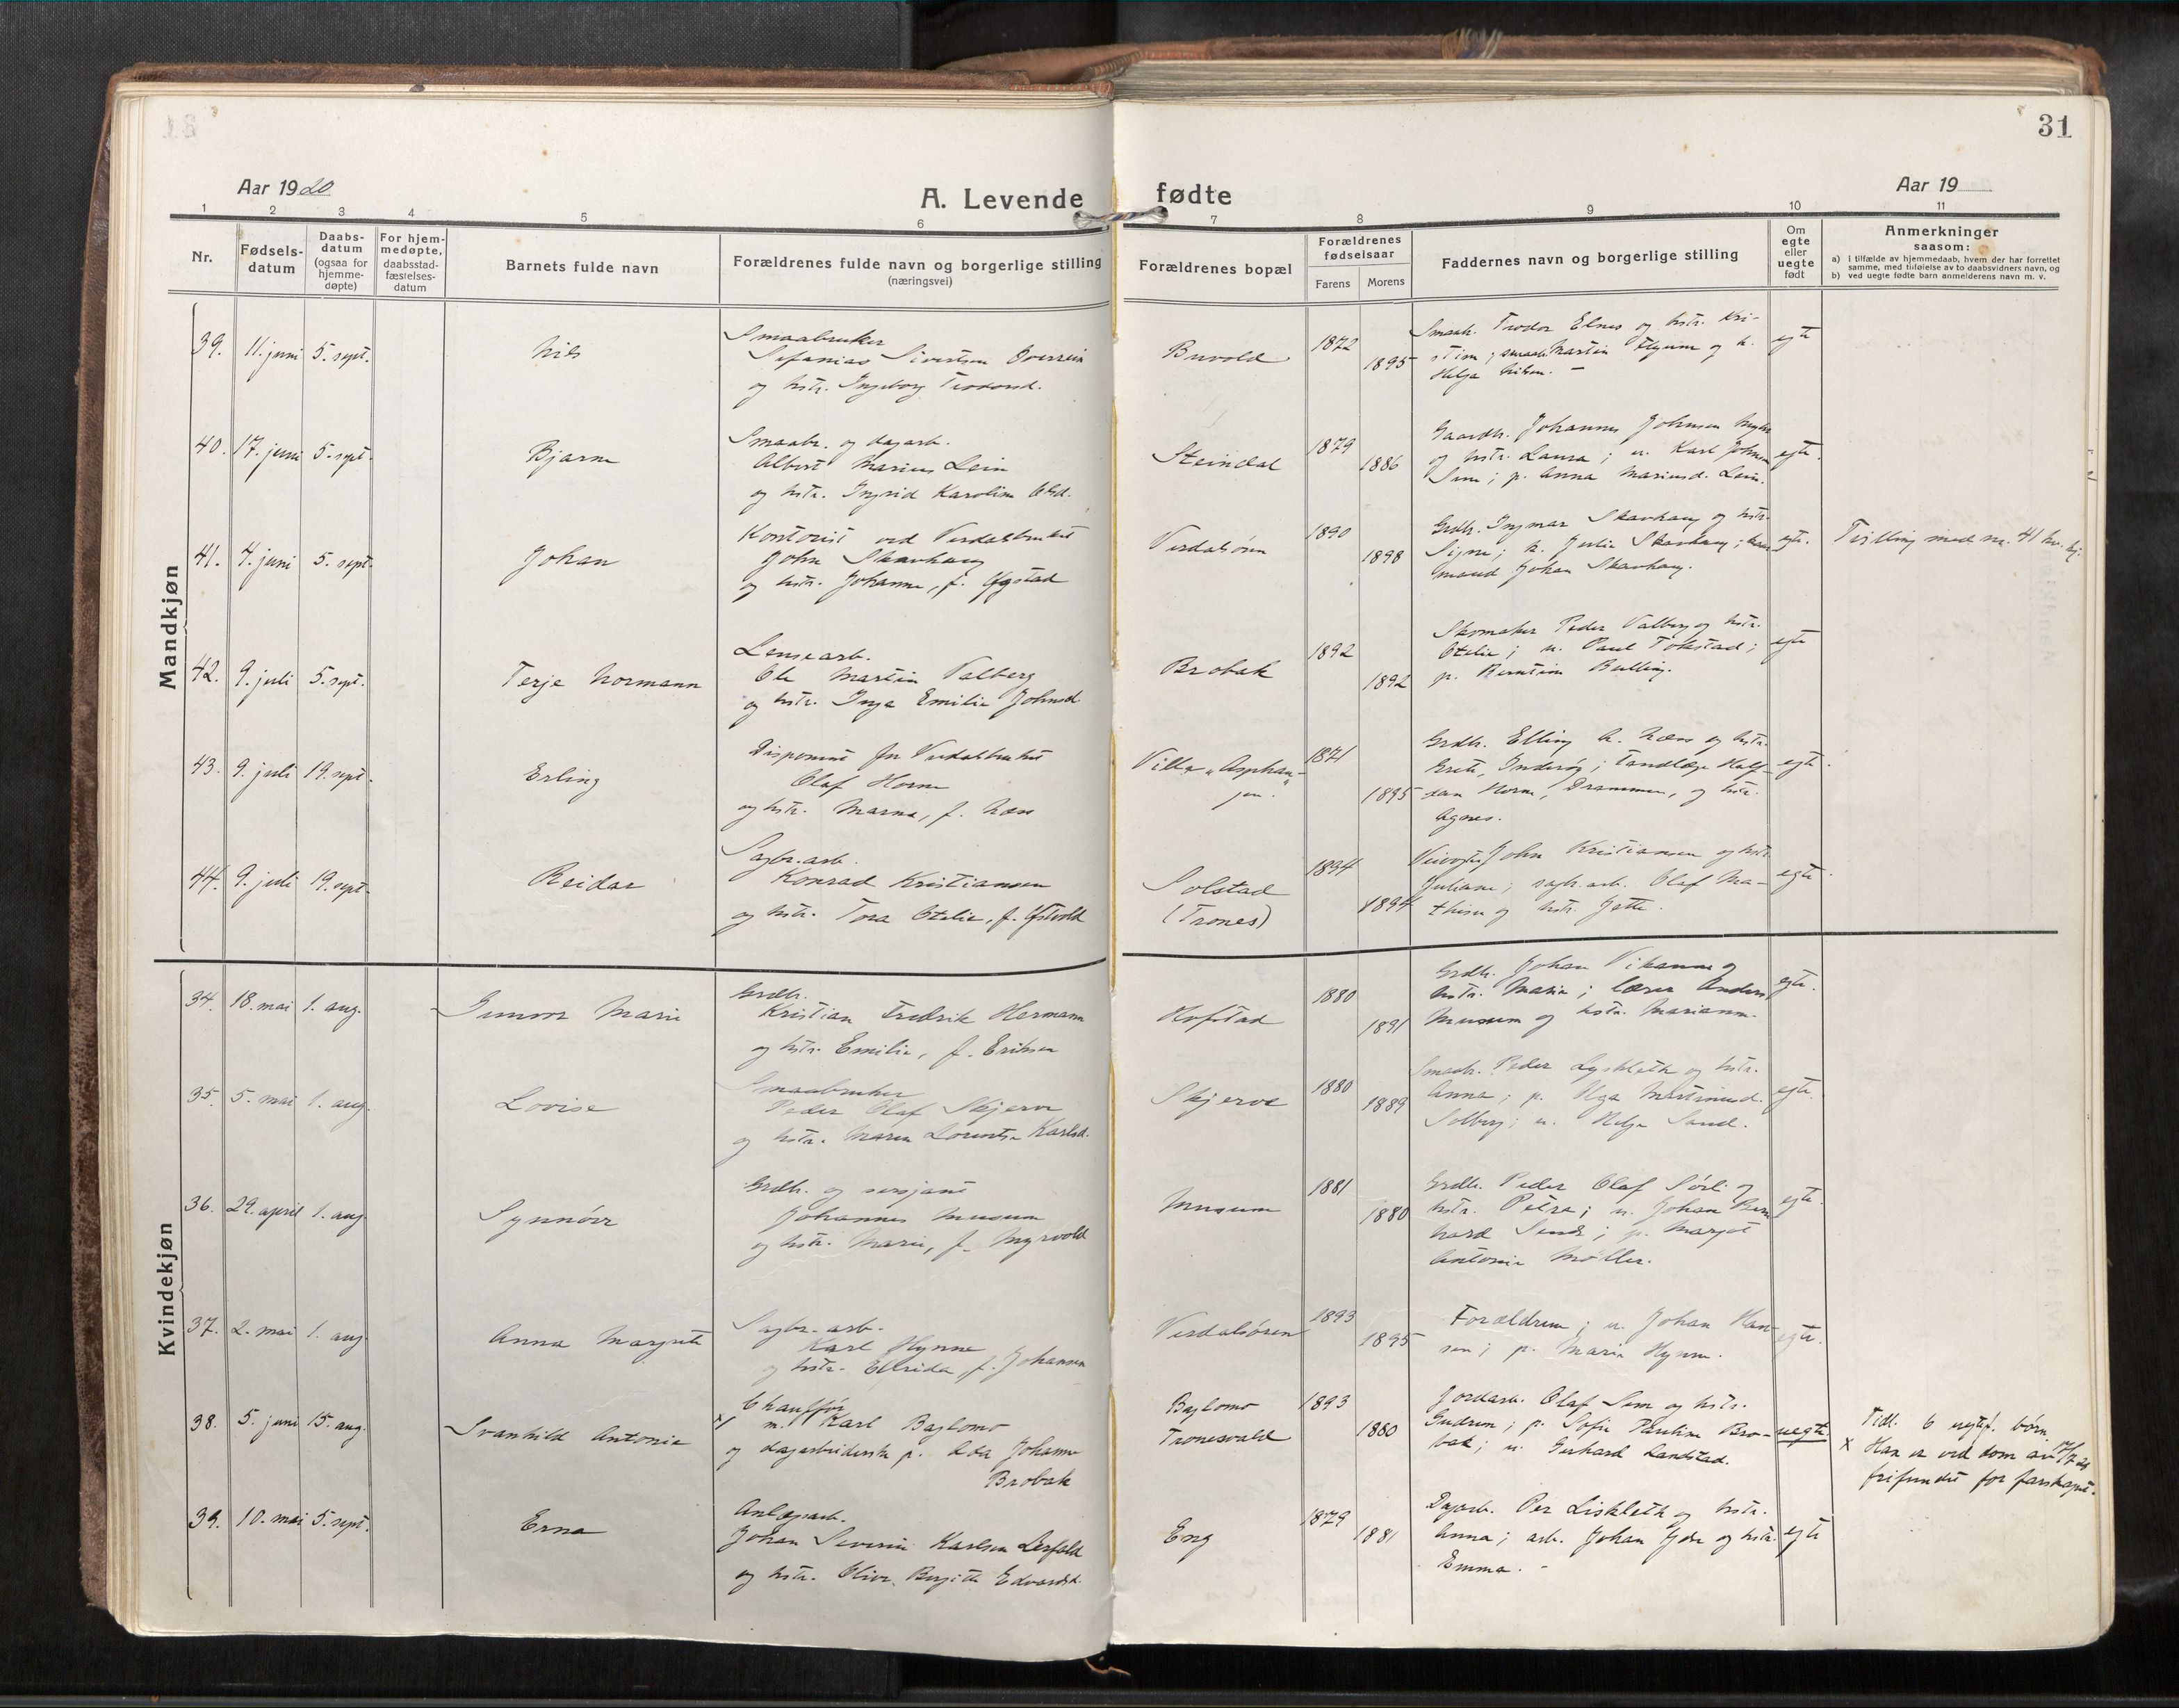 31
Aar 1920
A. Levende fødte
Aar 19
1 2 3 4 5 6 7 8 9 10 11
Nr.
Fødsels-
datum
Daabs-
datum
(ogsaa for
hjemme-
døpte)
For hjem-
medøpte,
daabsstad-
fæstelses-
datum
Barnets fulde navn
Forældrenes fulde navn og borgerlige stilling
(næringsvei)
Forældrenes bopæl
Forældrenes
fødselsaar
Farens Morens
Faddernes navn og borgerlige stilling
Om
egte
eller
uegte
født
Anmerkninger
saasom:
a) i tilfælde av hjemmedaab, hvem der har forrettet
samme, med tilføielse av to daabsvidners navn, og
b) ved uegte fødte barn anmelderens navn m. v.
Mandkjøn
39. 11. juni 5. sept. Nils
Smaabruker
Sefanias Sivertsen Overrein
og hstr. Ingeborg Teodorsd.
Buvold 1872 1895
Smaab. Teodor Elnes og hstr. Kri-
stine; smaab. Martin Flyum og k.
Helga Nilsen. -
egte
40. 17. juni 5. sept. Bjarne
Smaabr. og dagarb.
Albert Marius Lein
og hstr. Ingrid Karoline Olsd.
Steindal 1879 1886
Gaardb. Johannes Johnsen
og hstr. Laura; u. Karl Johnsen
p. Anna Mariusd. Lein.
egte.
41. 4. juni 5. sept. Johan
Kontorist ved Verdalsbruket
John Skavhaug
og hstr. Johanne, f. Ygstad
Verdalsøren 1890 1898
Grdb. Ingmar Skavhaug og hstr.
Signe; k. Julie Skavhaug;
mand Johan Skavhaug.
egte.
Tvilling med nr. 41 kv.kj.
42. 9. juli 5. sept. Terje Normann
Lensearb.
Ole Martin Valberg
og hstr. Inga Emilie Johnsd.
Brobak 1892 1892
Skomaker Peder Valberg og hstr.
Otelie; u. Paul Tokstad;
p. Berntine Balling.
egte
43. 9. juli 19. sept. Erling
Disponent for Verdalsbruket
Olaf Horne
og hstr. Marna, f. Næss
Villa „Asphau-
gen." 1871 1895
Grdb. Elling A. Næss og hstr.
Grete, Inderøy; Tandlæge Half-
dan Horne, Drammen, og hstr.
Agnes.
egte.
44. 9. juli 19. sept. Reidar
Sagbr.arb.
Konrad Kristiansen
og hstr. Tora Otelie, f. Ystvold
Solstad
(Trones) 1894 1894
John Kristiansen og hstr.
Juliane; sagbr.arb. Olaf Ma-
thisen og hstr. Jette.
egte.
Kvindekjøn
34. 18. mai 1. aug. Gunvor Marie
Grdb.
Kristian Fredrik Hermann
og hstr. Emilie, f. Eriksen
Kofstad 1880 1891
Grdb. Johan Vikanne og
hstr. Maria; lærer Anders
Musum og hstr. Marianne.
egte.
35. 5. mai 1. aug. Lovise
Smaabruker
Peder Olaf Skjerve
og hstr. Maren Lorentse Karlsd.
Skjerve 1880 1889
Smaab. Peder Lyskleth og hstr.
Anna; p. Olga Martinusd.
Solberg; u. Helge Sand.
egte.
36. 29. april 1. aug. Synnöve
Grdb. og sersjant
Johannes Musum
og hstr. Marie, f. Myrvold
Musum 1881 1880
Grdb. Peder Olaf Sørli og
hstr. Petra; u. Johan Bern
hard Sende; p. Margot
Antonie Møller.
egte.
37. 2. mai 1. aug. Anna Margrete
Sagbr. arb.
Karl Hynne
og hstr. Elfrida, f. Johansen
Verdalsøren 1893 1895
Forældrene; u. Johan Han-
sen; p. Marie Hynne.
egte.
38. 5. juni 15. aug. Svanhild Antonie
Chauffør
x/ m. Karl Baglomo
og dagarbeiderske p. Ada Johanne
Brobak
Baglomo
Tronesvald 1893 1880
Jordarb. Olaf Sem og hstr.
Gudrun; p. Sofie Pauline Bro-
bak; u. Gerhard Landstad.
uegte.
Tidl. 6 uegtf. børn
x Han er ved dom av 17/7 21
frifundet for farskapet.
39. 10. mai 5. sept. Erna
Anlægsarb.
Johan Severin Karlsen Lerfald
og hstr. Olive Bergitte Edvardsd.
Eng 1879 1881
Dagarb. Per Liskleth og hstr.
Anna; arb. Johan og hstr.
Emma. -
egte